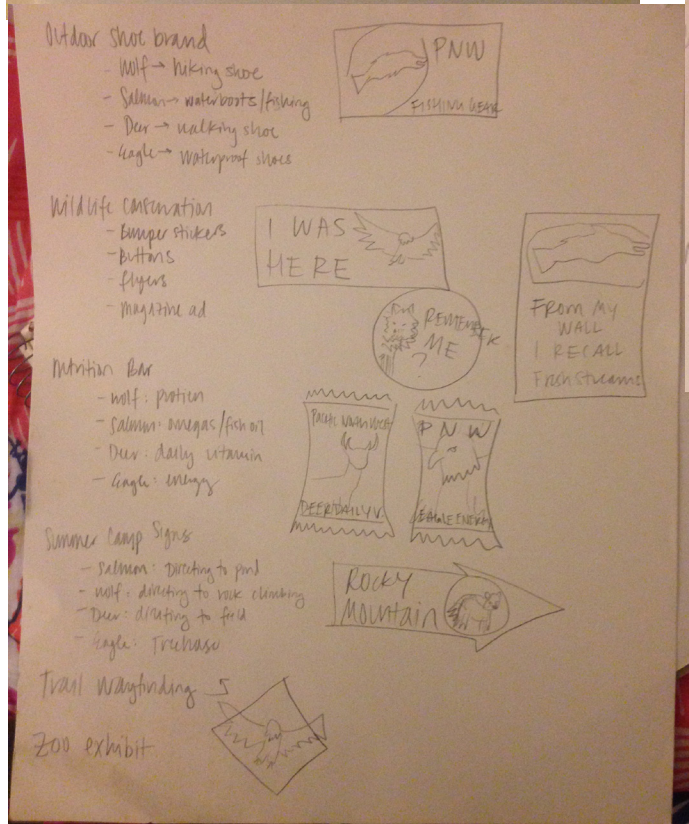 Outdoor shoe brand
- Wolf → hiking shoe
- Salmon → waterboots/fishing
- Deer → walking shoe
- Eagle → waterproof shoes
PNW
FISHING GEAR
Wildlife Conservation
- Bumper stickers
- Buttons
- flyers
- magazine ad
I WAS
HERE
REMEMBER
ME
?
FROM MY
WALL
I RECALL
Fresh Streams
Nutrition Bar
- Wolf: protien
- Salmon: omegas/fish oil
- Deer: daily vitamin
- Eagle: energy
PACIFIC NORTHWEST
DEER DAILY V.
PNW
EAGLE ENERGY
Summer Camp Signs
- Salmon: Directing to pond
- Wolf: directing to rock climbing
- Deer: directing to field
- Eagle: Treehouse
ROCKY
MOUNTAIN
Trail Wayfinding
Zoo exhibit